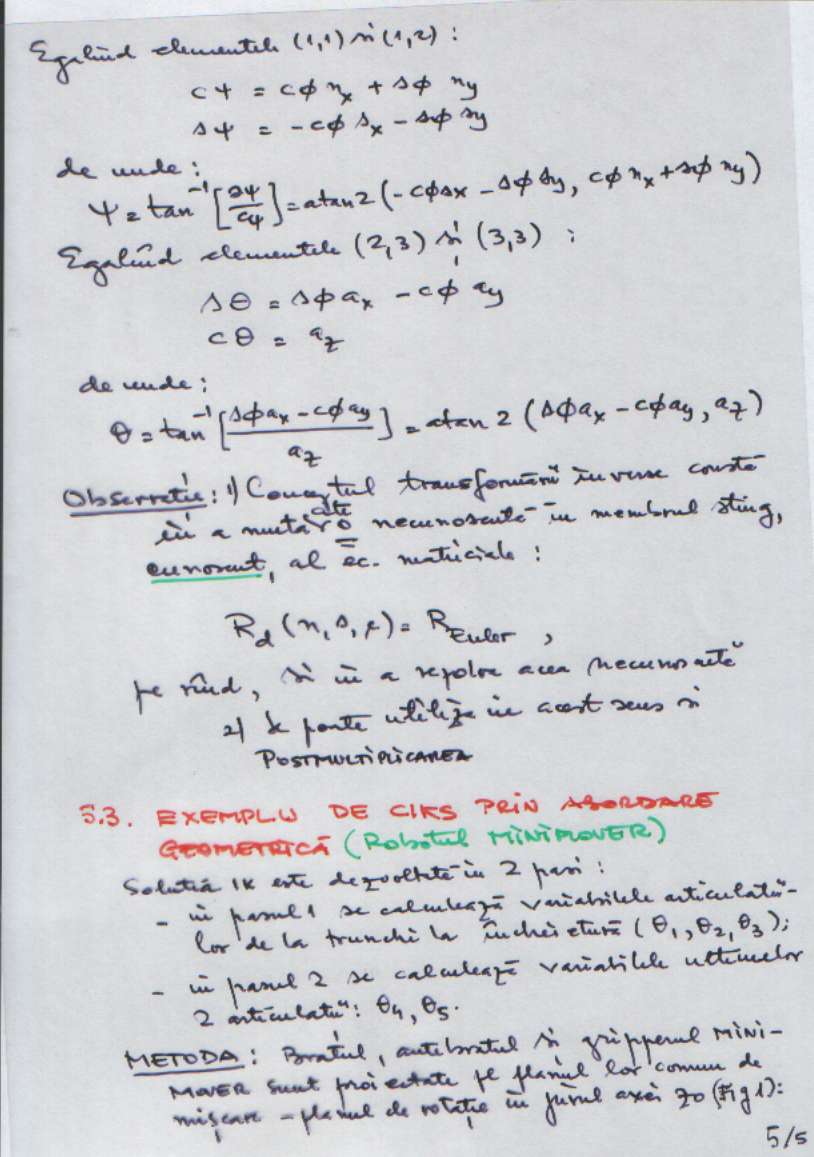 Egalînd elementele (1,1) si (1,2) :
cψ = cϕ nx + sϕ ny
sψ = -cϕ sx - sϕ sy
de unde :
ψ = tan⁻¹ [sψ/cψ] = atan2 (-cϕsx - sϕsy, cϕnx + sϕny)
Egalînd elementele (2,3) și (3,3) :
sθ = sϕ ax - cϕ ay
cθ = az
de unde :
θ = tan⁻¹ [(sϕax - cϕay)/az] = atan 2 (sϕax - cϕay, az)
Observatie : 1) Conceptul transformării inverse constă
în a muta cîte o necunoscută în membrul stîng,
cunoscut, al ec. matriciale :
Rd (n, s, a) = REuler ,
pe rînd, si în a rezolva acea necunoscută
2) Se poate utiliza în acest sens si
POSTMULTIPLICAREA
5.3. EXEMPLU DE CIKS PRIN ABORDARE
GEOMETRICĂ (Robotul MINIMOVER)
Solutia IK este dezvoltată în 2 pasi :
- în pasul 1 se calculează variabilele articulatii-
lor de la trunchi la încheietură (θ1, θ2, θ3);
- în pasul 2 se calculează variabilele ultimelor
2 articulatii : θ4, θ5.
METODA : Bratul, antebratul si gripperul MINI-
MOVER sunt proiectate pe planul lor comun de
mișcare - planul de rotație în jurul axei z0 (Fig 1):
5/5